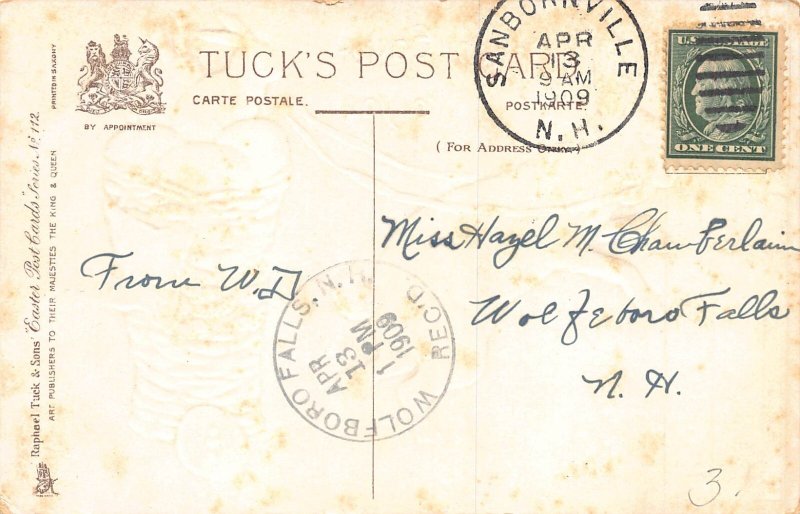 TUCK'S POST CARD
CARTE POSTALE.
POSTKARTE.
( FOR ADDRESS ONLY.)
BY APPOINTMENT
PRINTED IN SAXONY
Raphael Tuck & Sons' "Easter Post Cards" Series No 112.
ART PUBLISHERS TO THEIR MAJESTIES THE KING & QUEEN
SANBORNVILLE
APR
13
9 AM
1909
N.H.
U.S. POSTAGE
ONE CENT
From W.D
Miss Hazel M. Chamberlain
Wolfeboro Falls
N. H.
WOLFBORO FALLS, N.H. REC'D
APR
13
1 PM
1909
3.